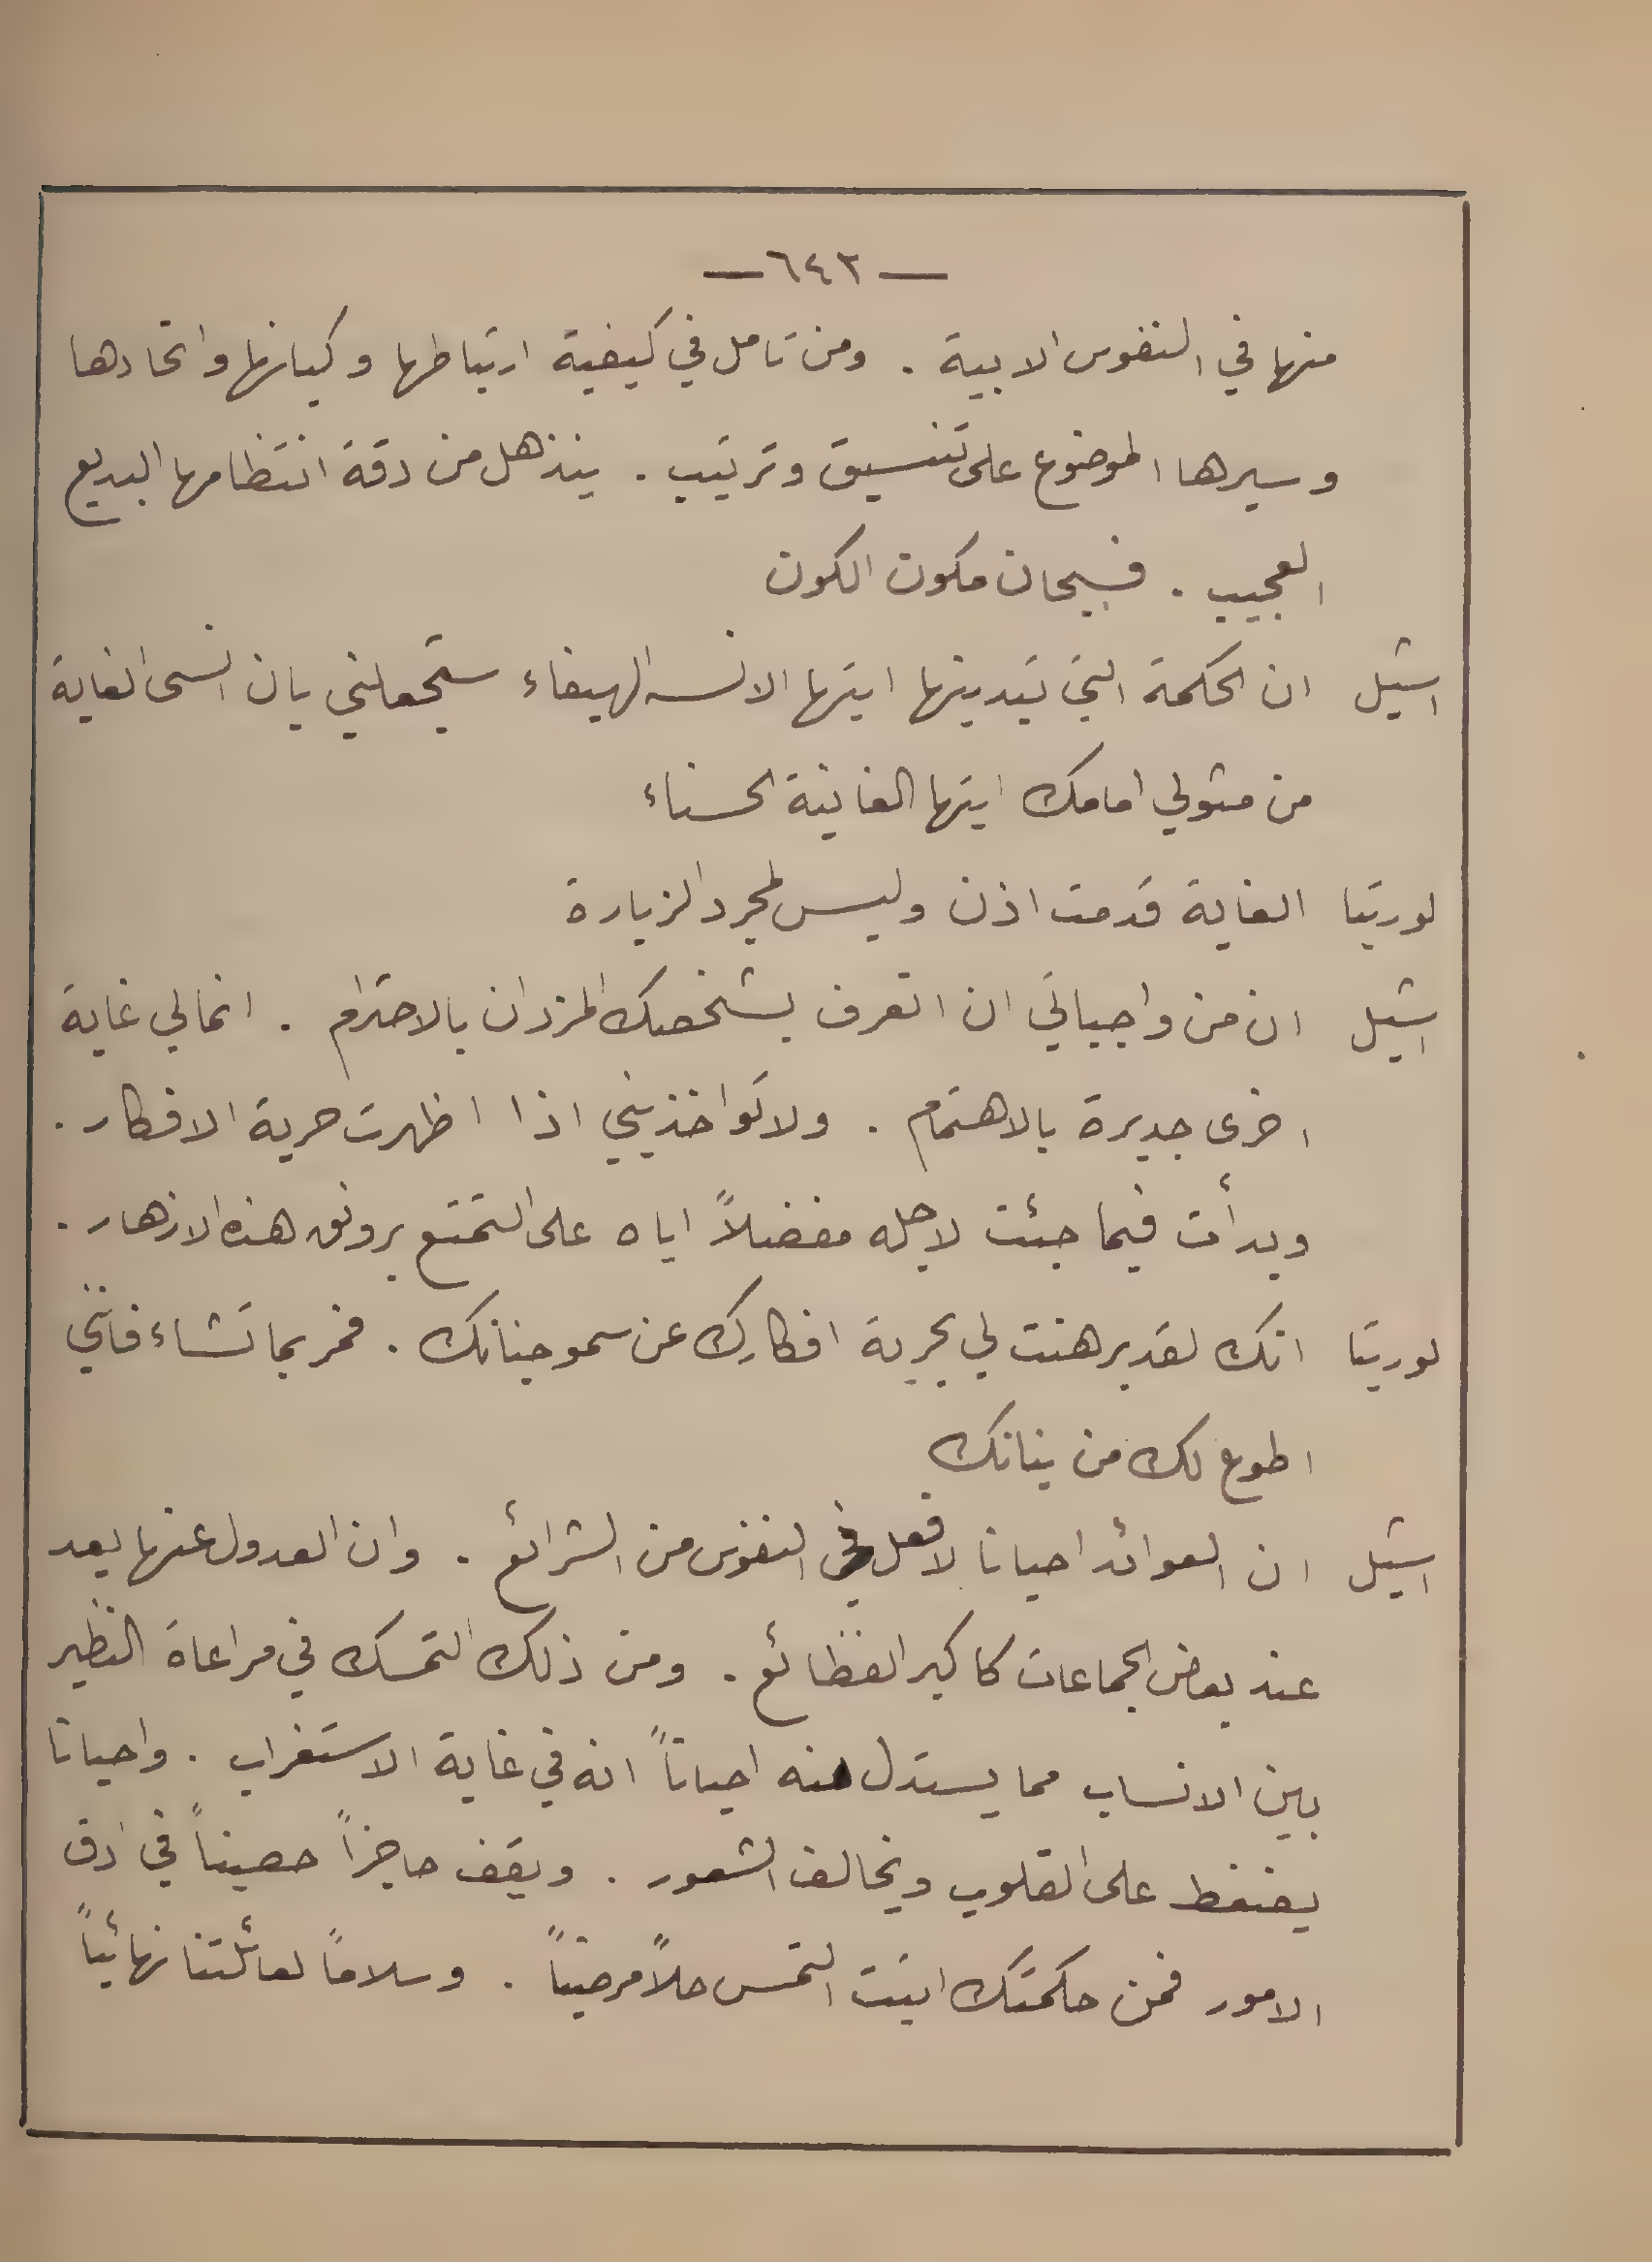 — ٦٤٣ —
منها في النفوس الابية . ومن تامل في كيفية ارتباطها وكيانها واتحادها
وسيرها الموضوع على تنسيق وترتيب . ينذهل من دقة انتظامها البديع
العجيب . فسبحان مكون الكون
اشيل ان الحكمة التي تبدينها ايتها الانسه الهيفاء ستجعلني بان انسى الغاية
من مثولي امامك ايتها الغانية الحسناء
لوريتا الغاية قدمت اذن وليس لمجرد الزيارة
اشيل ان من واجباتي ان اتعرف بشخصك المزدان بالاحترام . انما لي غاية
اخرى جديرة بالاهتمام . ولا تواخذيني اذا اظهرت حرية الافكار .
وبدأت فيما جئت لاجله مفضلاً اياه على التمتع برونق هذه الازهار .
لوريتا انك لقد برهنت لي بحرية افكارك عن سمو جنانك . فمر بما تشاء فانني
اطوع لك من بنانك
اشيل ان العوائد احيانا لافعل في النفوس من الشرائع . وان العدول عنها يعد
عند بعض الجماعات كاكبر الفظائع . ومن ذلك التمسك في مراعاة النظير
بين الانساب مما يستدل منه احياناً انه في غاية الاستغراب . واحيانا
يضغط على القلوب ويخالف الشعور . ويقف حاجزاً حصيناً في ادق
الامور فمن حكمتك اتيت التمس حلاً مرضياً . وسلاماً لعائلتنا نهائياً